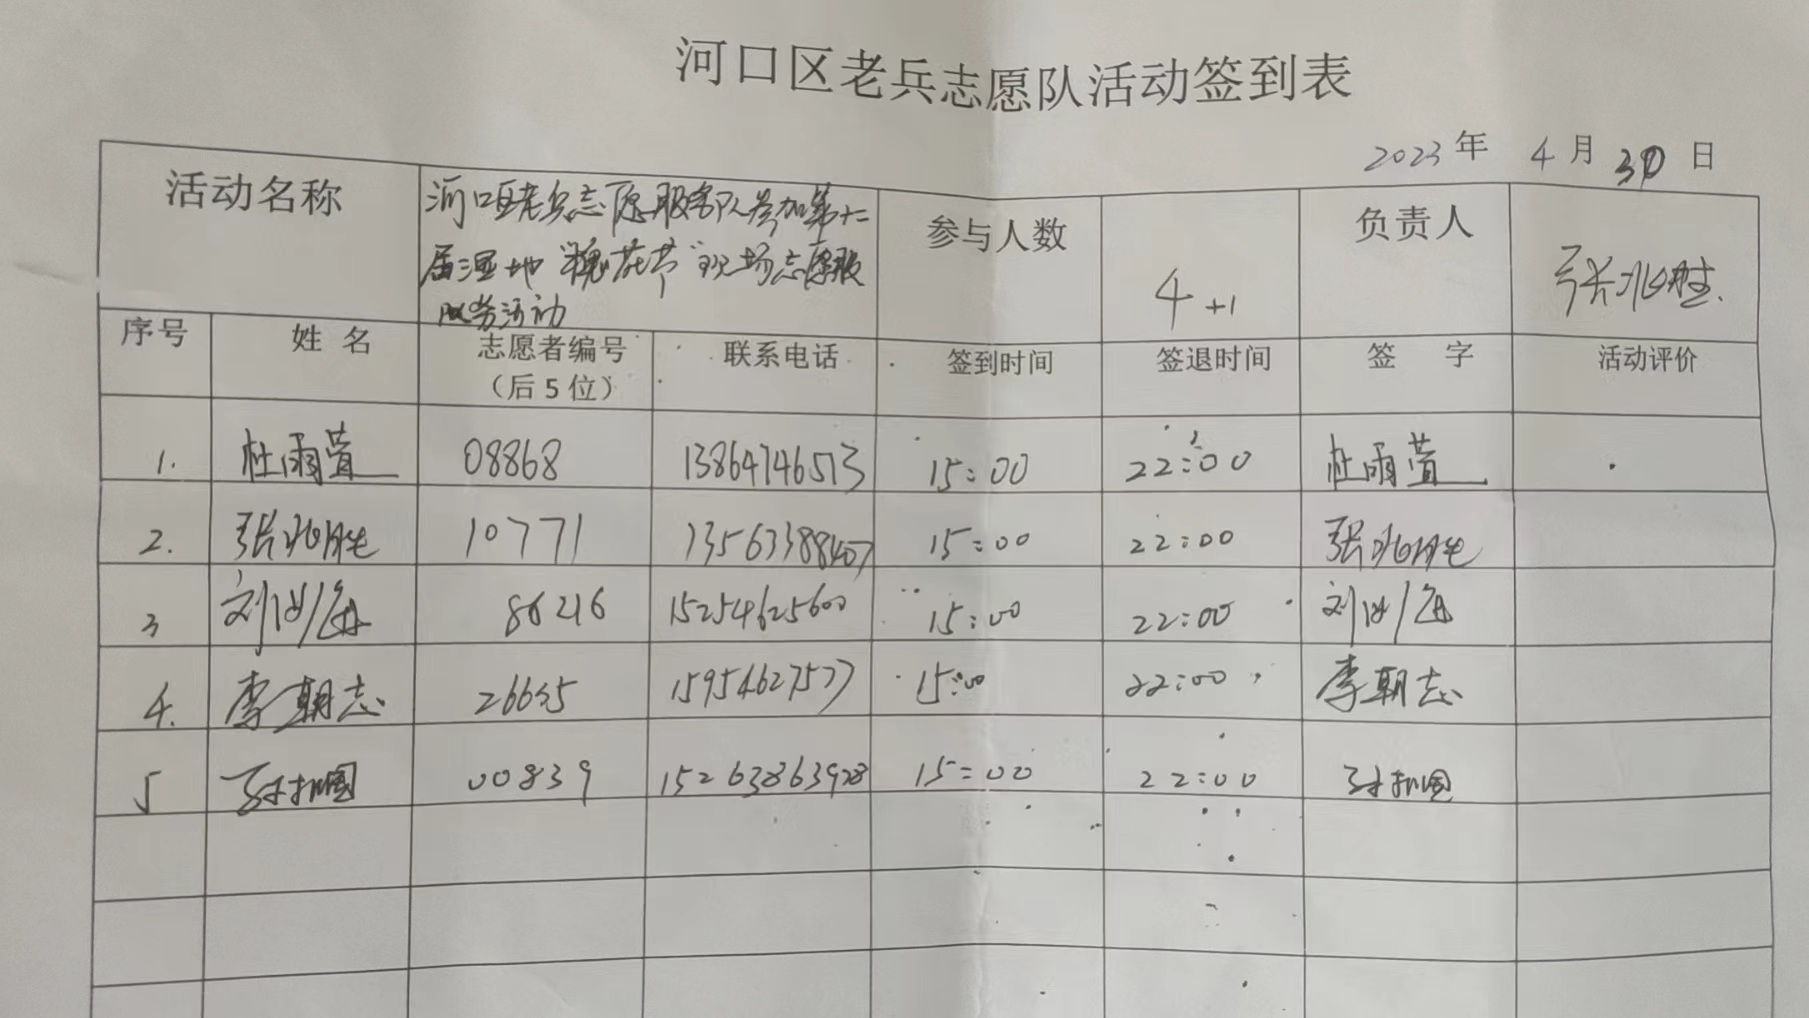 河口区老兵志愿队活动签到表
2023年 4月30日
活动名称
河口区老兵志愿服务队参加第十二
届湿地“槐花节”现场志愿服
服务活动
参与人数
4+1
负责人
张兆胜
序号 姓名 志愿者编号 联系电话 签到时间 签退时间 签字 活动评价
（后5位）
1. 杜雨萱 08868 13864746513 15:00 22:00 杜雨萱
2. 张兆胜 10771 13563388407 15:00 22:00 张兆胜
3 刘 86216 15254625600 15:00 22:00 刘
4. 李朝志 26635 15954627577 15:00 22:00 李朝志
5 00839 15263863928 15:00 22:00